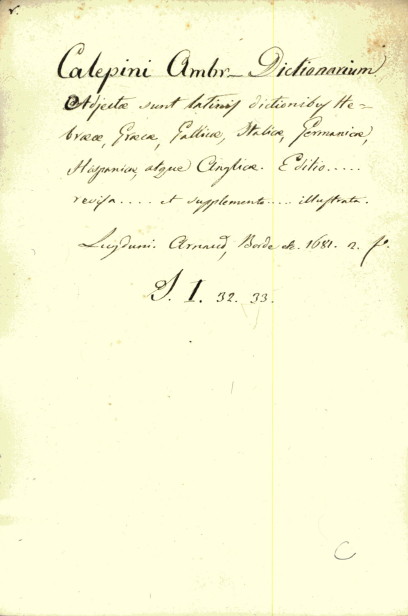 v.
Calepini Ambr_ Dictionarium
Adjectæ sunt latinis dictionibus He=
brææ, Græcæ, Gallicæ, Italicæ, Germanicæ,
Hispanicæ, atque Anglicæ. Editio.....
revisa.... et supplemento.... illustrata.
Lugduni. Arnaud, Borde &c. 1681. 2. fo.
I. 32. 33.
C